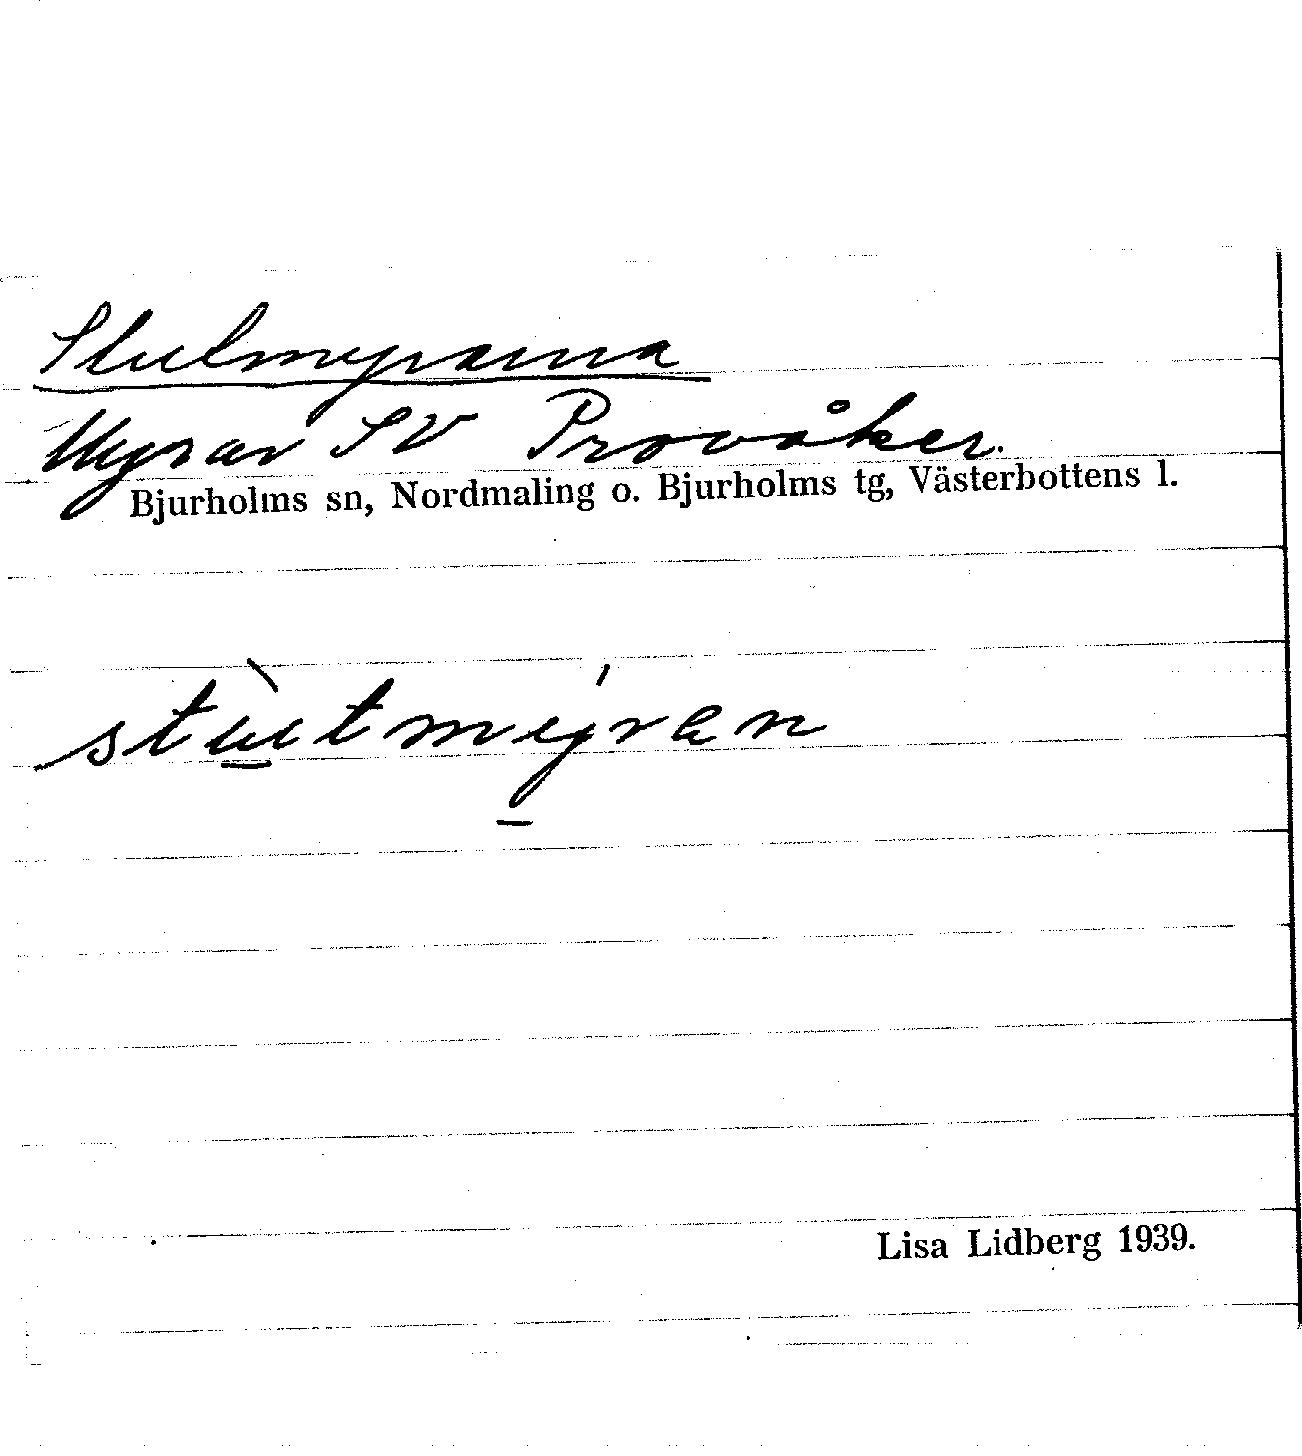 Stutmyrarna
Myrar SV Provåker.
Bjurholms sn, Nordmaling o. Bjurholms tg, Västerbottens l.
stù̱tmý̱ran
Lisa Lidberg 1939.